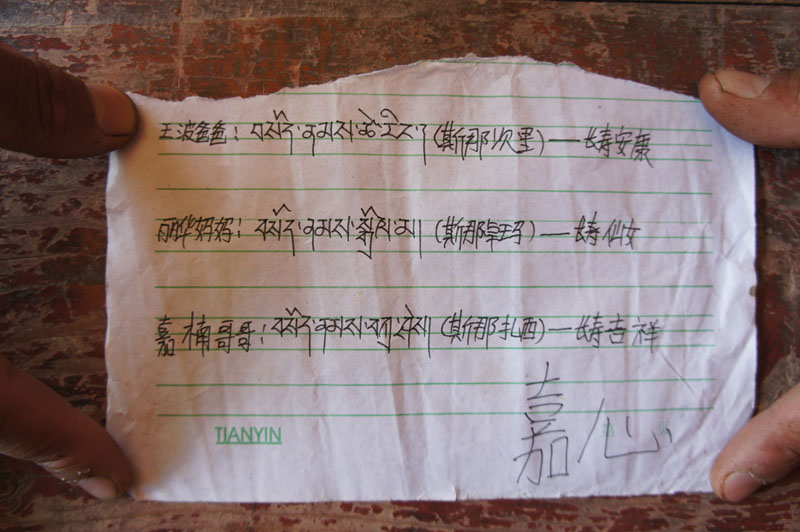 王波爸爸：བསོད་ནམས་ཚེ་རིང་། (斯那次里)—长寿安康
丽华妈妈：བསོད་ནམས་སྒྲོལ་མ། (斯那卓玛)—长寿仙女
嘉楠哥哥：བསོད་ནམས་བཀྲ་ཤིས། (斯那扎西)—长寿吉祥
嘉心
TIANYIN